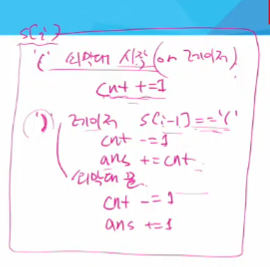 s[i]
'(' 쇠막대 시작 (or 레이저)
cnt +=1
')' 레이저 s[i-1]=='('
cnt -=1
ans += cnt
쇠막대 끝
cnt -=1
ans +=1